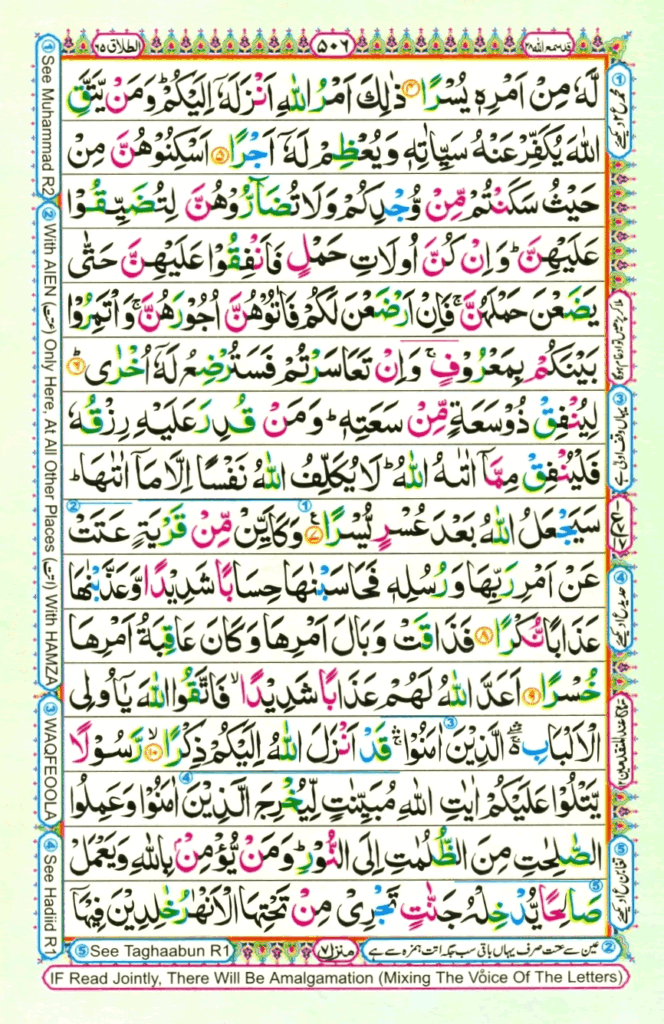 قد سمع اللہ ۲۸
۵۰۶
الطلاق ۶۵
لَّهٗ مِنْ اَمْرِهٖ يُسْرًا ۴ ذٰلِكَ اَمْرُ اللّٰهِ اَنْزَلَهٗۤ اِلَيْكُمْ ؕ وَمَنْ يَّتَّقِ
اللّٰهَ يُكَفِّرْ عَنْهُ سَيِّاٰتِهٖ وَيُعْظِمْ لَهٗۤ اَجْرًا ۵ اَسْكِنُوْهُنَّ مِنْ
حَيْثُ سَكَنْتُمْ مِّنْ وُّجْدِكُمْ وَلَا تُضَآرُّوْهُنَّ لِتُضَيِّقُوْا
عَلَيْهِنَّ ؕ وَاِنْ كُنَّ اُولَاتِ حَمْلٍ فَاَنْفِقُوْا عَلَيْهِنَّ حَتّٰى
يَضَعْنَ حَمْلَهُنَّ ۚ فَاِنْ اَرْضَعْنَ لَكُمْ فَاٰتُوْهُنَّ اُجُوْرَهُنَّ ۚ وَاْتَمِرُوْا
بَيْنَكُمْ بِمَعْرُوْفٍ ۚ وَاِنْ تَعَاسَرْتُمْ فَسَتُرْضِعُ لَهٗۤ اُخْرٰى ؕ ۶
لِيُنْفِقْ ذُوْ سَعَةٍ مِّنْ سَعَتِهٖ ؕ وَمَنْ قُدِرَ عَلَيْهِ رِزْقُهٗ
فَلْيُنْفِقْ مِمَّاۤ اٰتٰىهُ اللّٰهُ ؕ لَا يُكَلِّفُ اللّٰهُ نَفْسًا اِلَّا مَاۤ اٰتٰىهَا ؕ
سَيَجْعَلُ اللّٰهُ بَعْدَ عُسْرٍ يُّسْرًا ۷ ع ① وَكَاَيِّنْ مِّنْ قَرْيَةٍ عَتَتْ ②
عَنْ اَمْرِ رَبِّهَا وَرُسُلِهٖ فَحَاسَبْنٰهَا حِسَابًا شَدِيْدًا وَّعَذَّبْنٰهَا
عَذَابًا نُّكْرًا ۸ فَذَاقَتْ وَبَالَ اَمْرِهَا وَكَانَ عَاقِبَةُ اَمْرِهَا
خُسْرًا ۹ اَعَدَّ اللّٰهُ لَهُمْ عَذَابًا شَدِيْدًا ۙ فَاتَّقُوا اللّٰهَ يٰۤاُولِى
الْاَلْبَابِ ۛۚ الَّذِيْنَ اٰمَنُوْا ۛؕ ③ قَدْ اَنْزَلَ اللّٰهُ اِلَيْكُمْ ذِكْرًا ۙ ۱۰ رَّسُوْلًا
يَّتْلُوْا عَلَيْكُمْ اٰيٰتِ اللّٰهِ مُبَيِّنٰتٍ ④ لِّيُخْرِجَ الَّذِيْنَ اٰمَنُوْا وَعَمِلُوا
الصّٰلِحٰتِ مِنَ الظُّلُمٰتِ اِلَى النُّوْرِ ؕ وَمَنْ يُّؤْمِنْ بِاللّٰهِ وَيَعْمَلْ
صَالِحًا يُّدْخِلْهُ ⑤ جَنّٰتٍ تَجْرِىْ مِنْ تَحْتِهَا الْاَنْهٰرُ خٰلِدِيْنَ فِيْهَاۤ
① See Muhammad R2
② With AIEN (عتت) Only Here, At All Other Places (اتت) With HAMZA
③ WAQFEOOLA
④ See Hadiid R1
① محمد ع ۲ دیکھئے
③ یہاں وقف اولی ہے
④ حدید ع ۱ دیکھئے
⑤ تغابن ع ۱ دیکھئے
② عین سے عتت صرف یہاں باقی سب جگہ اتت ہمزہ سے ہے
منزل ۷
⑤ See Taghaabun R1
IF Read Jointly, There Will Be Amalgamation (Mixing The Voice Of The Letters)